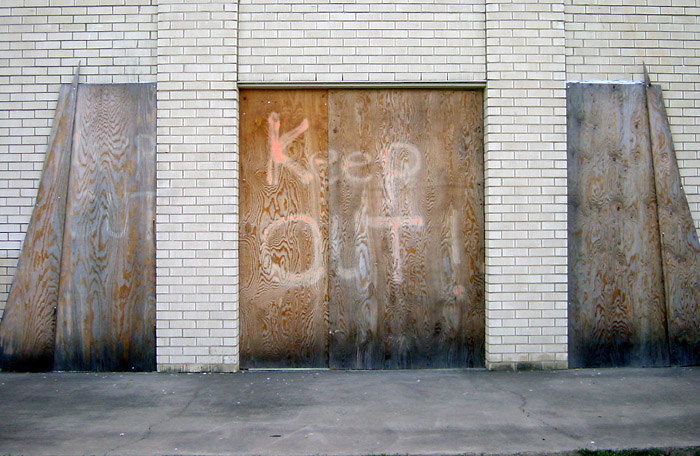 Keep
OUT!